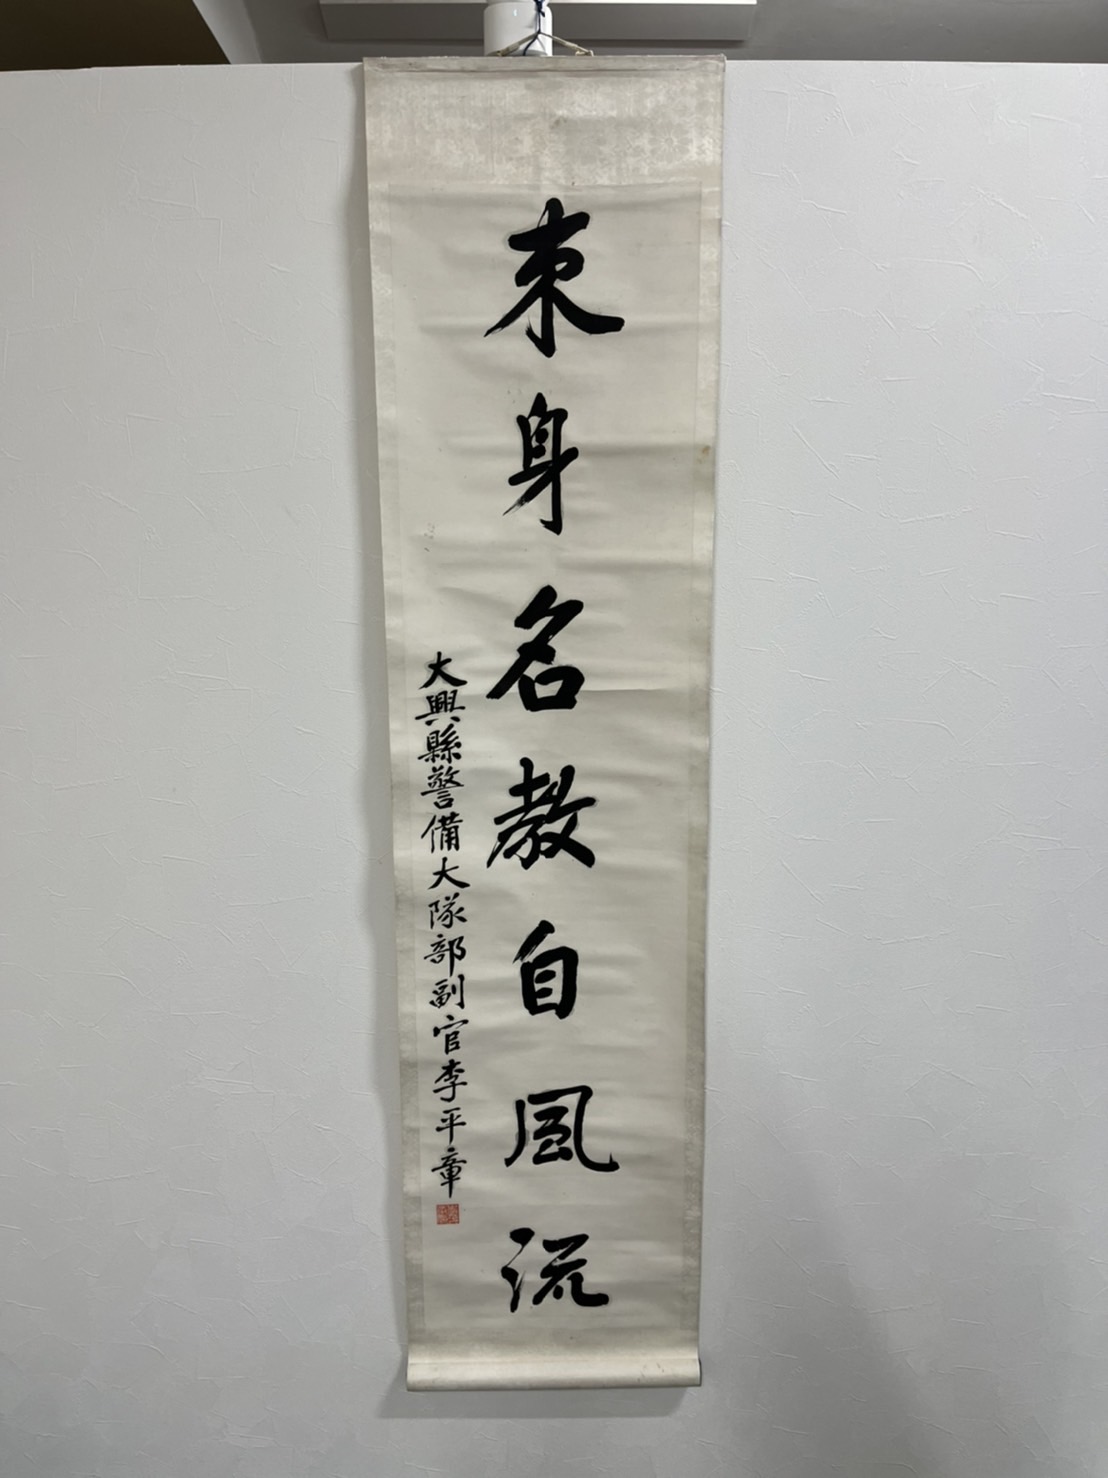 束身名教自風流
大興縣警備大隊部副官李平章